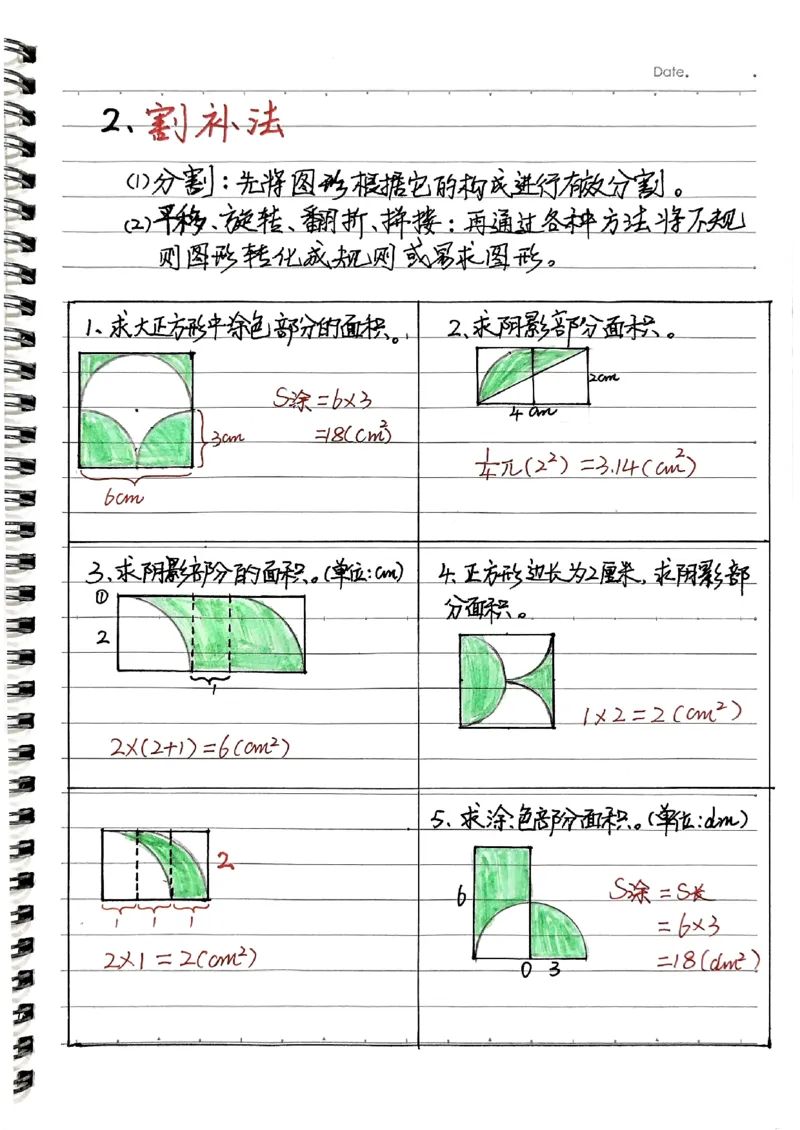 Date.
2、割补法
(1)分割：先将图形根据它的构成进行有效分割。
(2)平移、旋转、翻折、拼接：再通过各种方法将不规
则图形转化成规则或易求图形。
1、求大正方形中涂色部分的面积。
S涂=6×3
=18(cm²)
3cm
6cm
2、求阴影部分面积。
2cm
4cm
1/4π(2²)=3.14(cm²)
3、求阴影部分的面积。(单位:cm)
①
2
1
2×(2+1)=6(cm²)
4、正方形边长为2厘米，求阴影部
分面积。
1×2=2(cm²)
2
1 1 1
2×1=2(cm²)
5、求涂色部分面积。(单位:dm)
6
S涂=S长
=6×3
=18(dm²)
0 3